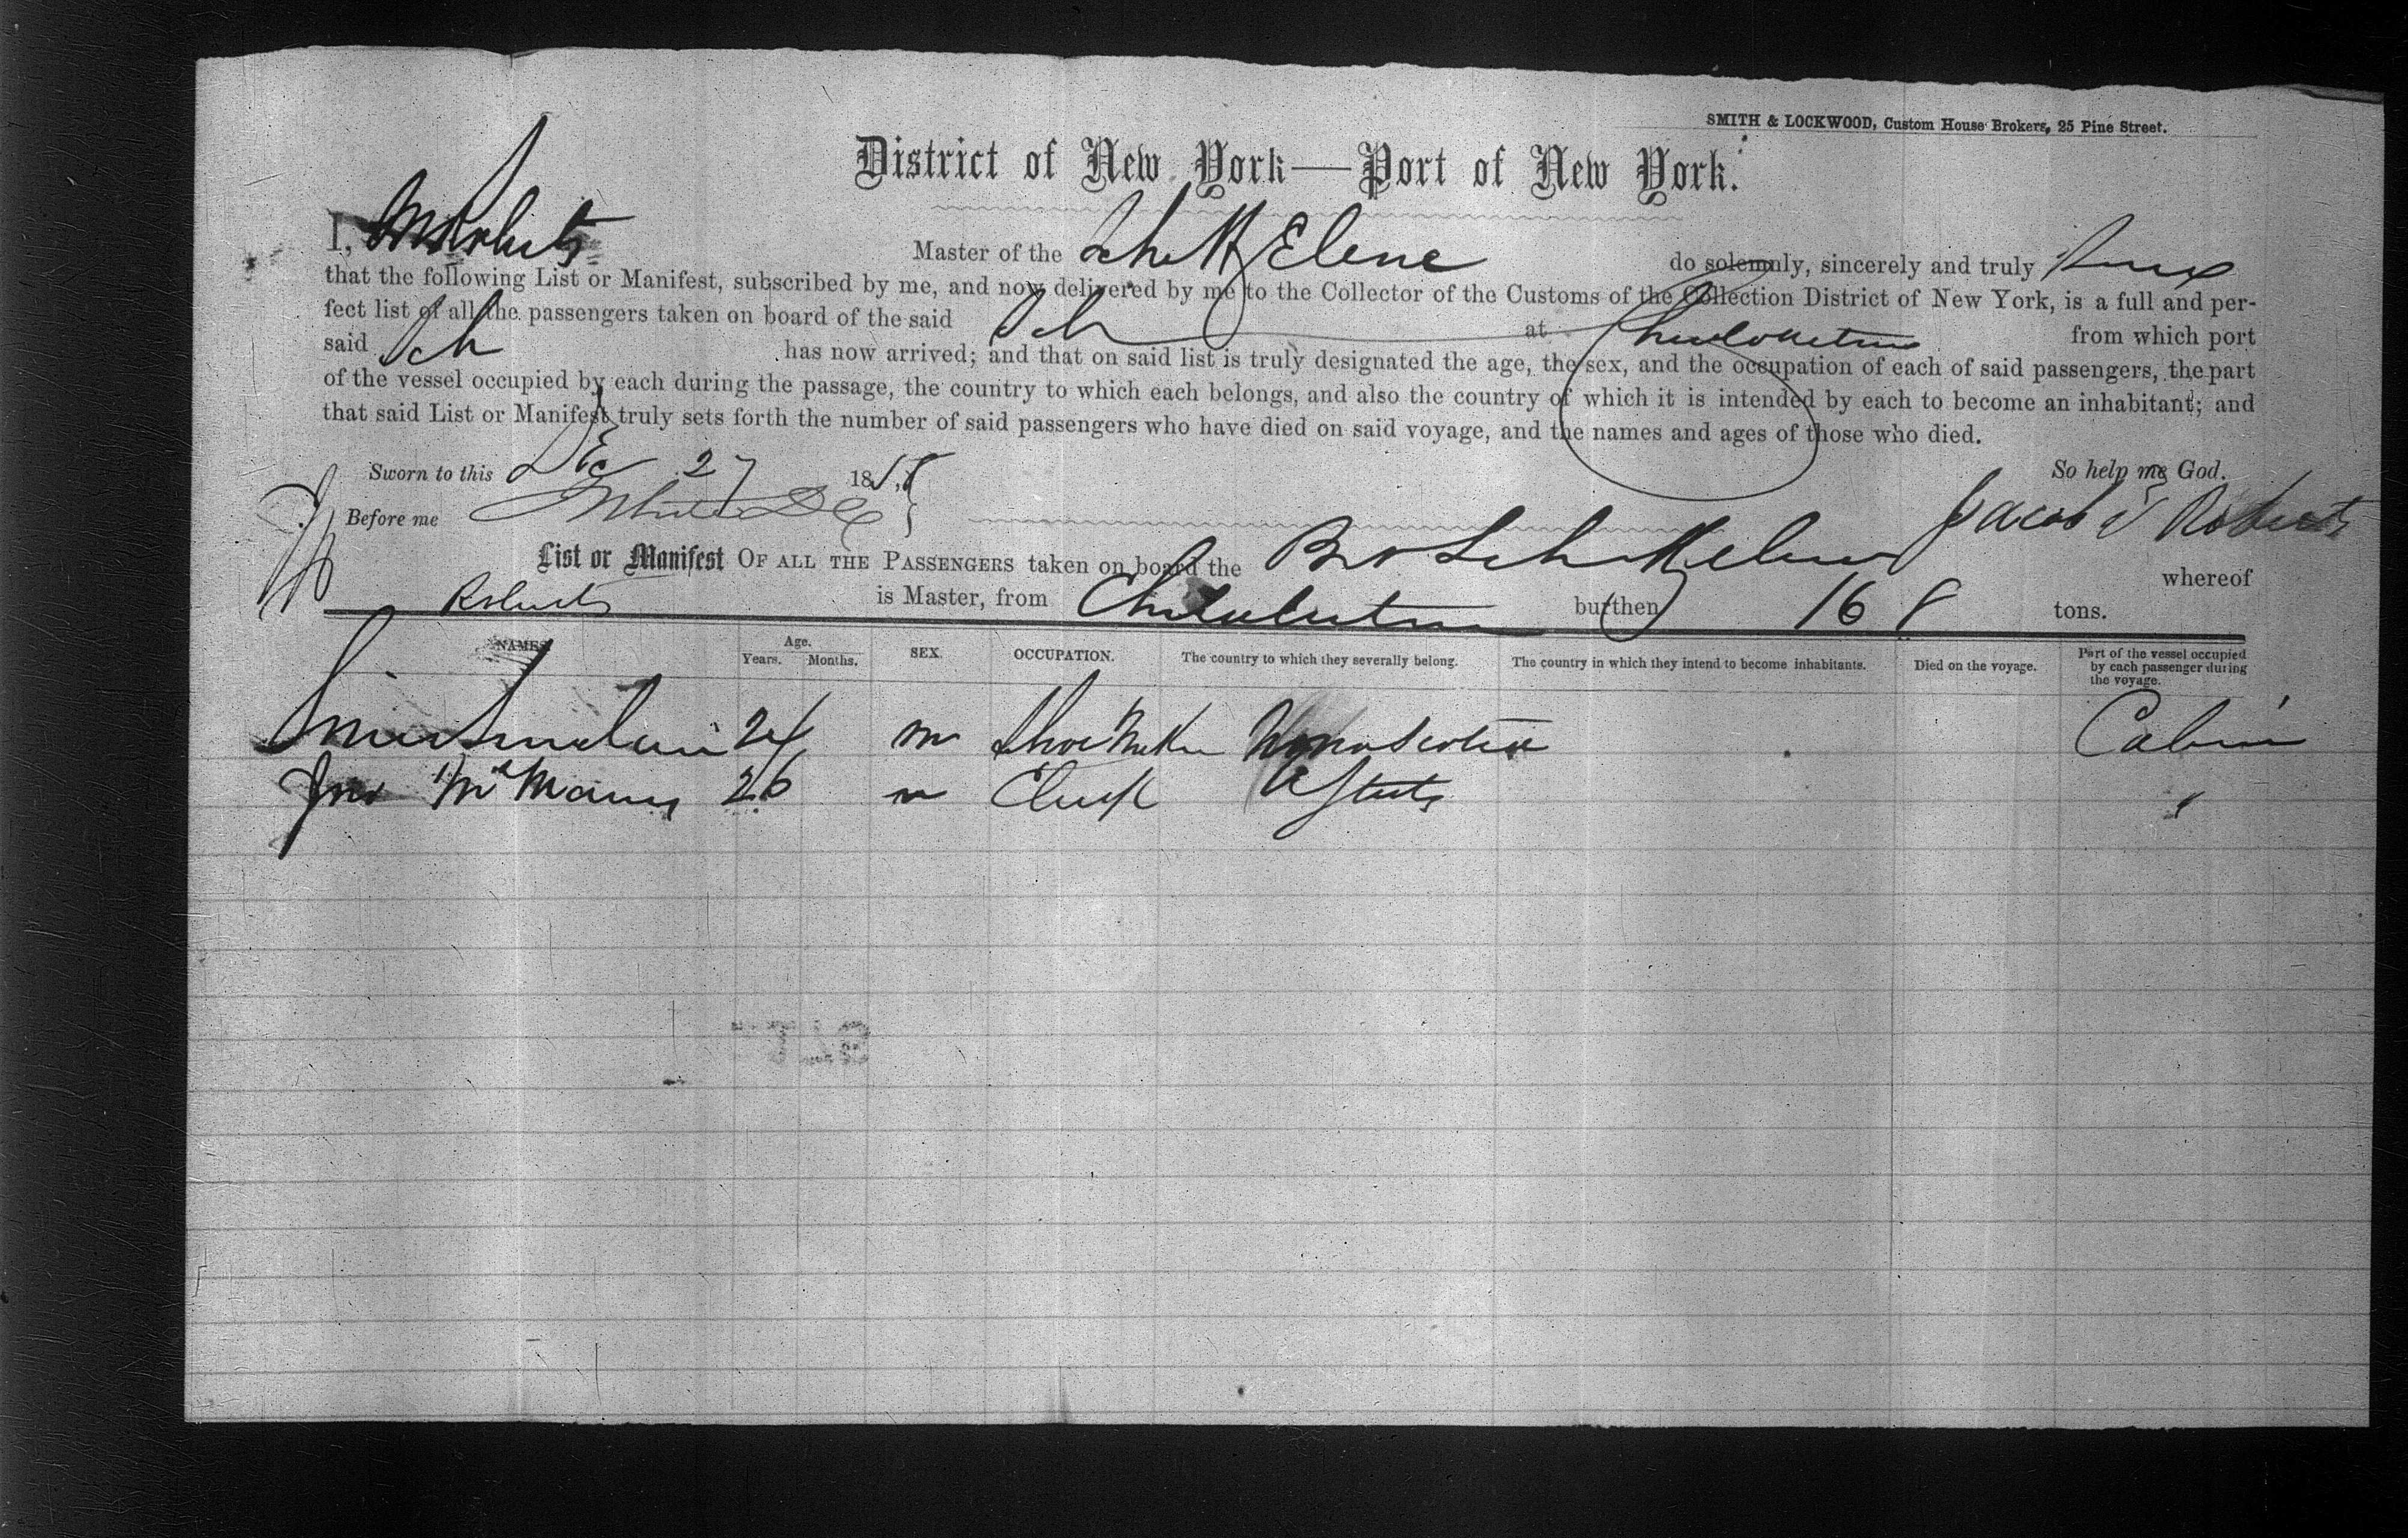 SMITH & LOCKWOOD, Custom House Brokers, 25 Pine Street.
District of New York—Port of New York.
I, Roberts Master of the Sch Elene do solemnly, sincerely and truly swear
that the following List or Manifest, subscribed by me, and now delivered by me to the Collector of the Customs of the Collection District of New York, is a full and per-
fect list of all the passengers taken on board of the said Sch at from which port
said Sch has now arrived; and that on said list is truly designated the age, the sex, and the occupation of each of said passengers, the part
of the vessel occupied by each during the passage, the country to which each belongs, and also the country of which it is intended by each to become an inhabitant; and
that said List or Manifest truly sets forth the number of said passengers who have died on said voyage, and the names and ages of those who died.
Sworn to this Dec 27 185 So help me God.
Before me Jacob Roberts
List or Manifest OF ALL THE PASSENGERS taken on board the Br Sch whereof
Roberts is Master, from burthen 168 tons.
NAMES Age. Years. Months. SEX. OCCUPATION. The country to which they severally belong. The country in which they intend to become inhabitants. Died on the voyage. Part of the vessel occupied by each passenger during the voyage.
24 m Shoemaker Nova Scotia Cabin
Jno McManus 26 m Clerk U States "